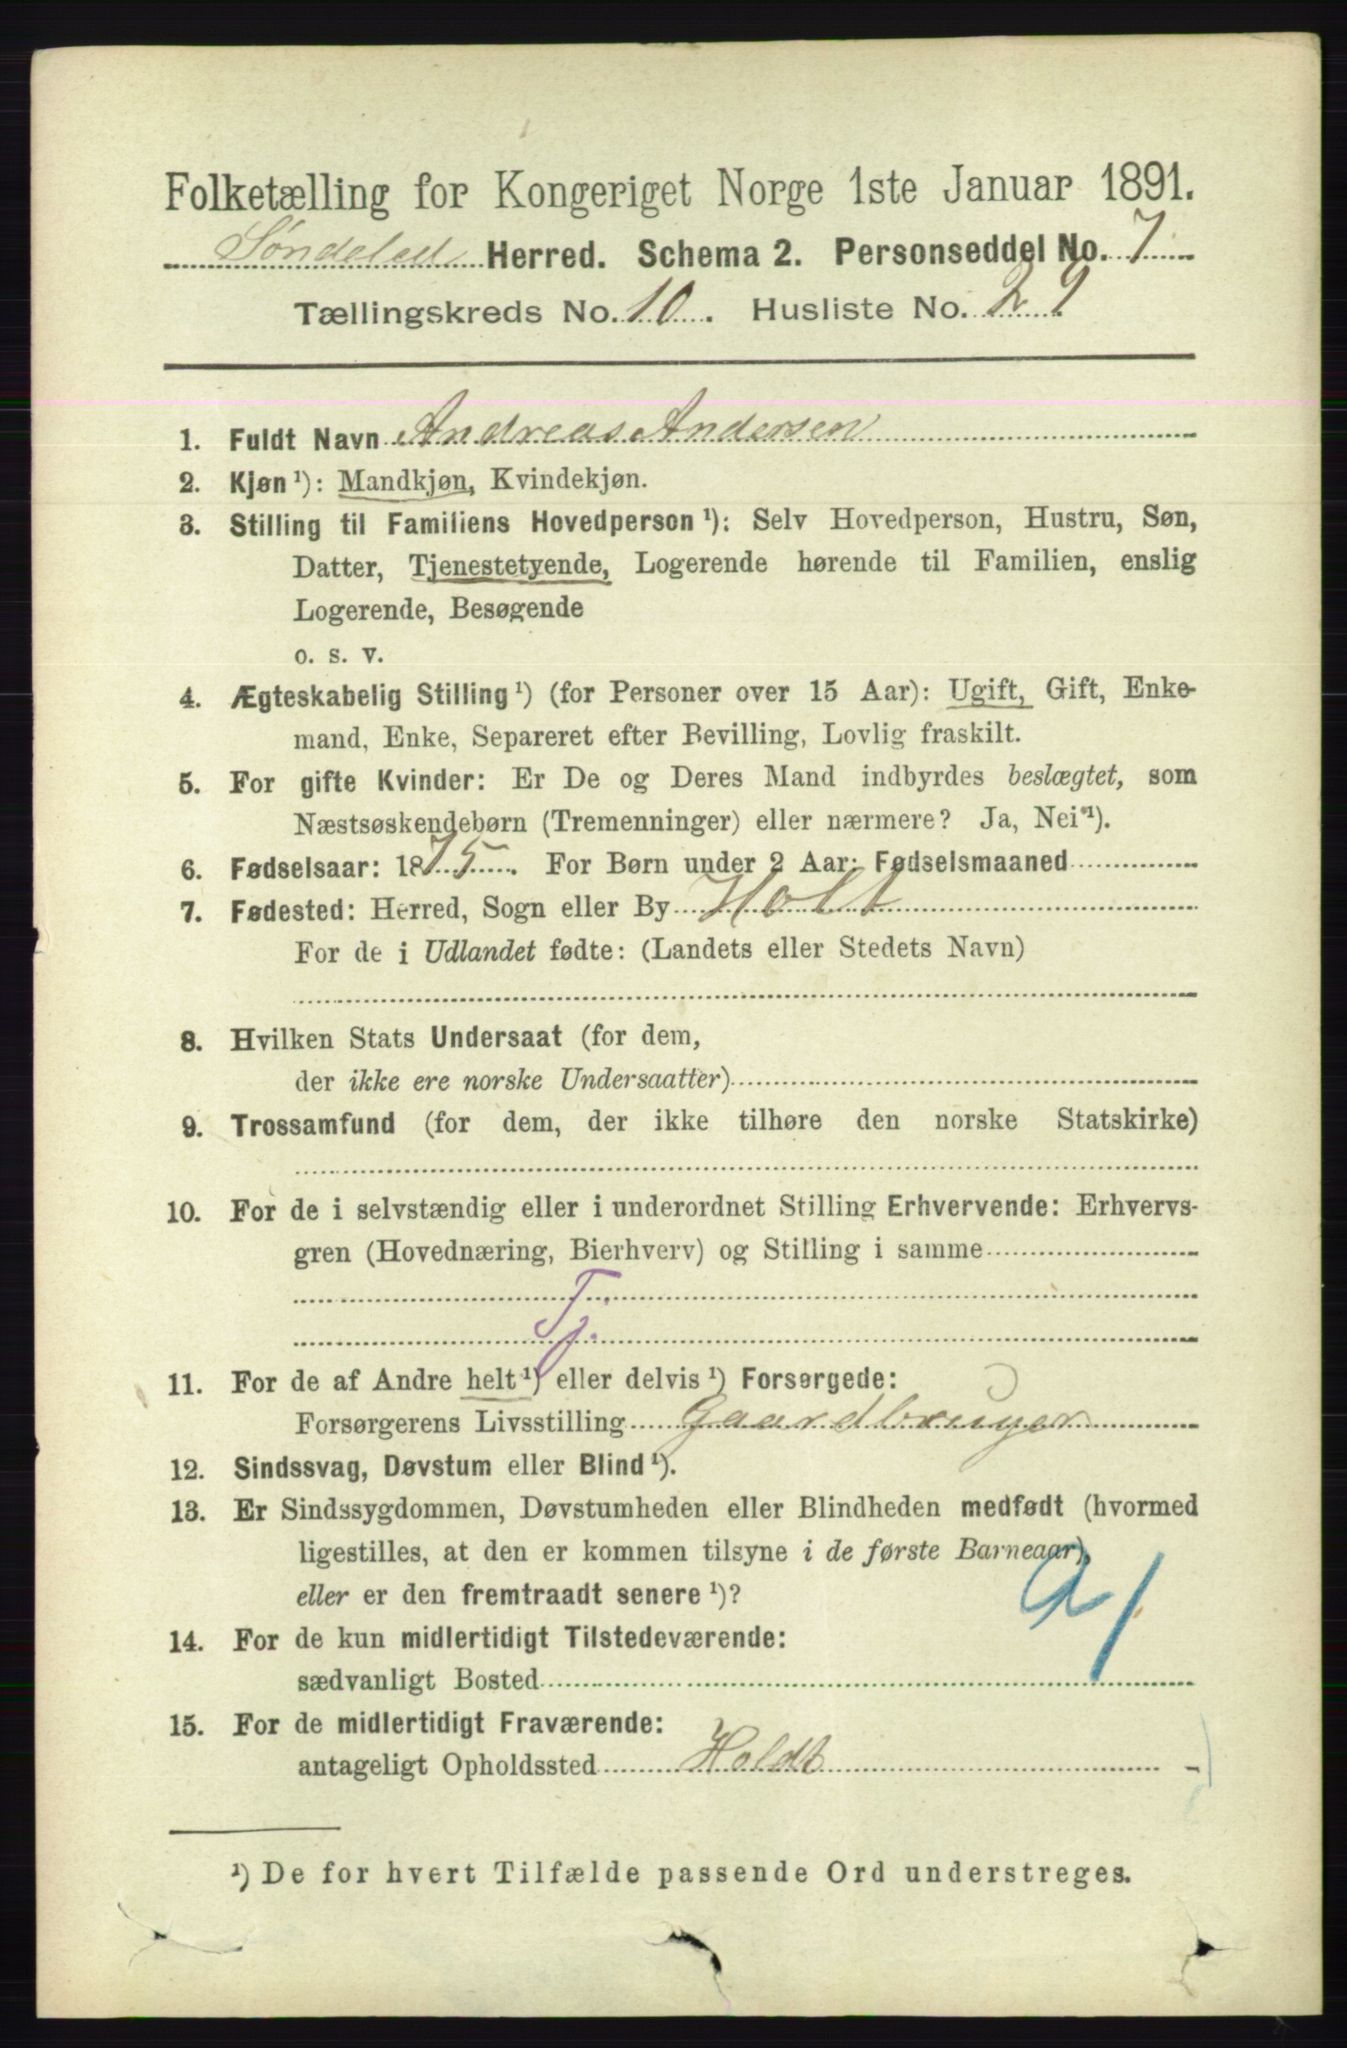 Folketælling for Kongeriget Norge 1ste Januar 1891.
Søndeled Herred. Schema 2. Personseddel No. 7
Tællingskreds No. 10. Husliste No. 29
1. Fuldt Navn Andreas Andersen
2. Kjøn ¹): Mandkjøn, Kvindekjøn.
3. Stilling til Familiens Hovedperson ¹): Selv Hovedperson, Hustru, Søn,
Datter, Tjenestetyende, Logerende hørende til Familien, enslig
Logerende, Besøgende
o. s. v.
4. Ægteskabelig Stilling ¹) (for Personer over 15 Aar): Ugift, Gift, Enke-
mand, Enke, Separeret efter Bevilling, Lovlig fraskilt.
5. For gifte Kvinder: Er De og Deres Mand indbyrdes beslægtet, som
Næstsøskendebørn (Tremenninger) eller nærmere? Ja, Nei ¹).
6. Fødselsaar: 1875. For Børn under 2 Aar: Fødselsmaaned
7. Fødested: Herred, Sogn eller By Holt
For de i Udlandet fødte: (Landets eller Stedets Navn)
8. Hvilken Stats Undersaat (for dem,
der ikke ere norske Undersaatter)
9. Trossamfund (for dem, der ikke tilhøre den norske Statskirke)
10. For de i selvstændig eller i underordnet Stilling Erhvervende: Erhvervs-
gren (Hovednæring, Bierhverv) og Stilling i samme
Tj.
11. For de af Andre helt ¹) eller delvis ¹) Forsørgede:
Forsørgerens Livsstilling Gaardbruger
12. Sindssvag, Døvstum eller Blind ¹).
13. Er Sindssygdommen, Døvstumheden eller Blindheden medfødt (hvormed
ligestilles, at den er kommen tilsyne i de første Barneaar),
eller er den fremtraadt senere ¹)?
14. For de kun midlertidigt Tilstedeværende:
sædvanligt Bosted
15. For de midlertidigt Fraværende:
antageligt Opholdssted Holdt
¹) De for hvert Tilfælde passende Ord understreges.